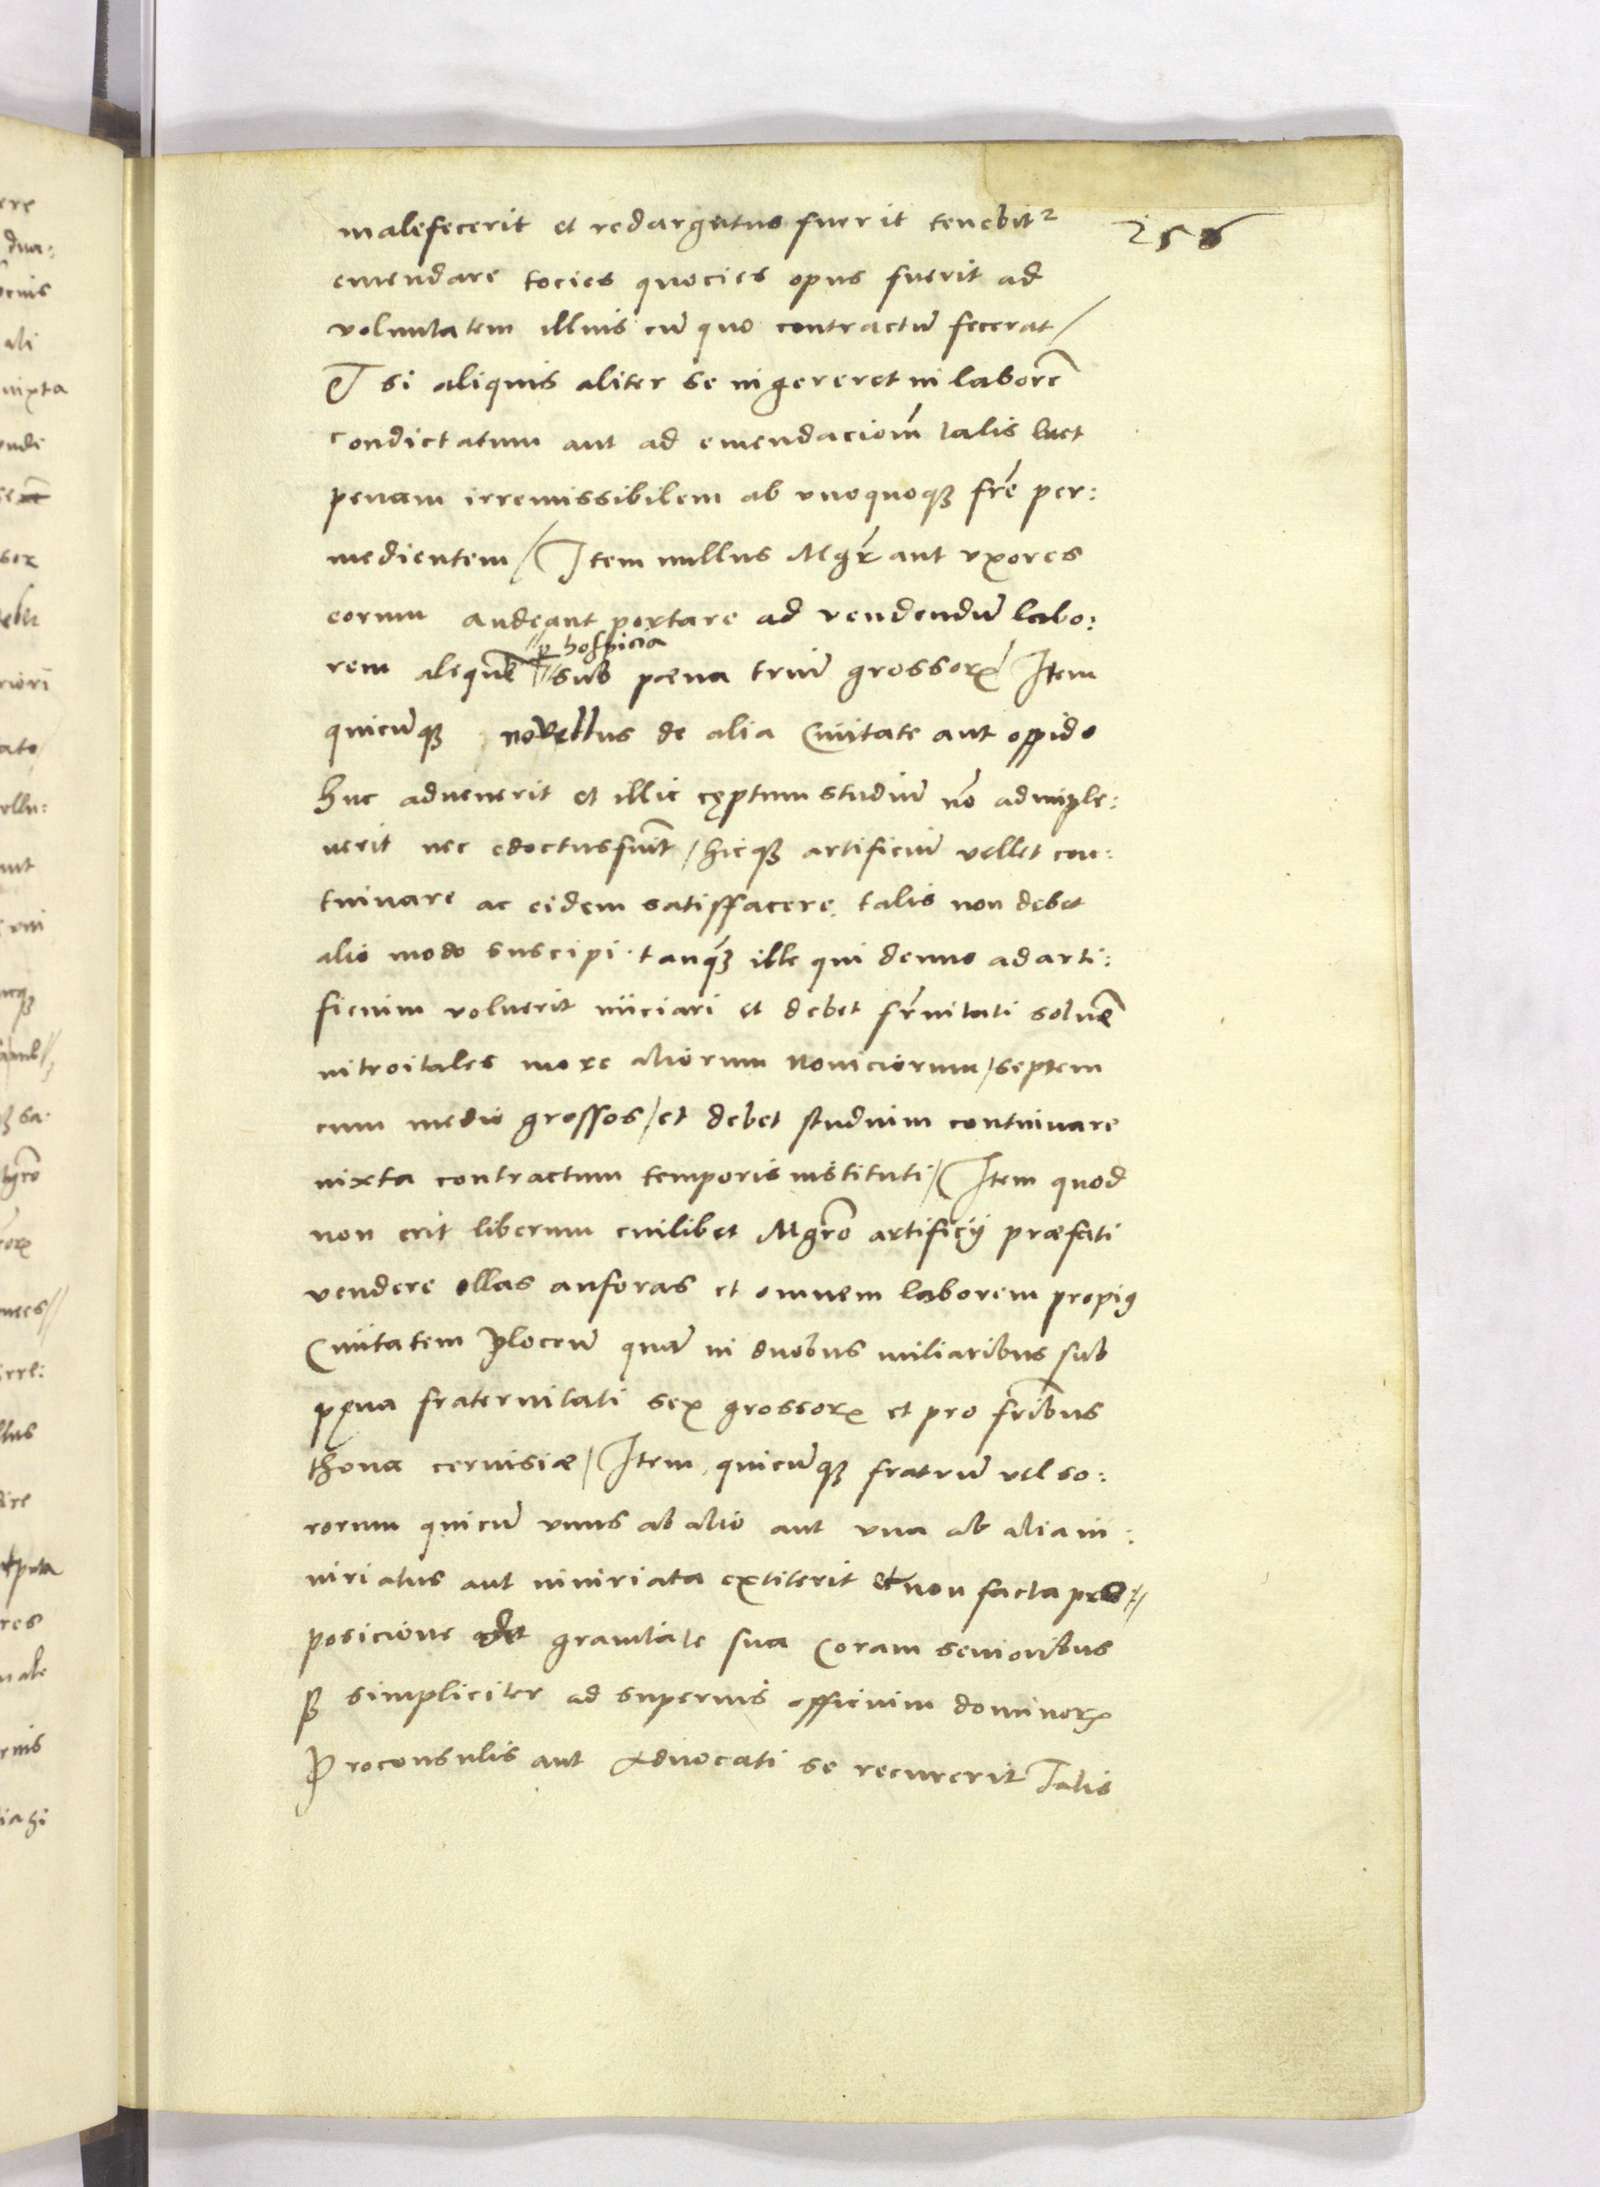 256
malefecerit et redargutus fuerit tenebitr
emendare tocies quocies opus fuerit ad
voluntatem illius cū quo contractū fecerat /
Et si aliquis aliter se ingereret in laborē
condictatum aut ad emendacionē talis luet
penam irremissibilem ab unoquoqȝ fr̄e per:
medientem / Item nullus Mgr̄ aut uxores
eorum audeant portare ad vendendū labo:
p hospicia
rem aliquē // sub pœna triū grossorꝝ / Item
quicūqȝ novellus de alia Civitate aut oppido
huc advenerit et illic cęptum studiū nō adimple:
verit nec edoctus fuit / hicqȝ artificiū vellet con:
tinuare ac eidem satisffacere, talis non debet
alio modo suscipi tanqȝ ille qui denuo ad arti:
ficium voluerit iniciari et debet fr̄nitati solvē
introitales more aliorum noviciorum / septem
cum medio grossos / et debet studium continuare
iuxta contractum temporis instituti / Item quod
non erit liberum cuilibet Mgrō artificij præfati
vendere ollas anforas et omnem laborem propiꝰ
Civitatem Plocēn quā in duobus miliaribus sub
pęna fraternitati sex grossorꝝ et pro fr̄ibus
thona cervisiæ / Item quicūqȝ fratrū vel so:
rorum quicū unus ab alio aut una ab alia in:
iuriatus aut iniuriata extiterit et non facta pro://
posicione de gravitate sua Coram senioribus
sȝ simpliciter ad superius officium dominorꝝ
Proconsulis aut Advocati se recurerit Talis